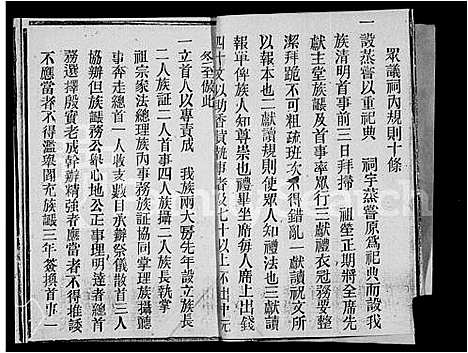 眾議祠內規則十條
一設蒸嘗以重祀典 祠宇蒸嘗原為祀典而設我
族清明首事前三日拜掃 祖塋正期將全席先
獻主堂族議及首事率眾行三獻禮衣冠務要整
潔拜跪不可粗疏班次不得錯亂一獻讀祝文所
以報本也二獻讀規則使眾人知祖宗家法也三獻讀
報單俾族人知尊崇也禮畢坐席每席上出錢
四十文以助香貲執事者及七十以上不出中元
冬至倣此
一立首人以專責成 我族兩大房先年設立族長
二人族証二人首事四人族攝二人族長執掌
祖宗家法總理族內事務族証協同掌理族攝聽
事奔走總首一人收支數目承辦祭儀散首三人
協辦但族議務公舉心地公正事理明達者首
務選擇殷實老成幹辦精強者應當者不得推諉
不應當者不得濫舉閤充族議三年簽換首事一